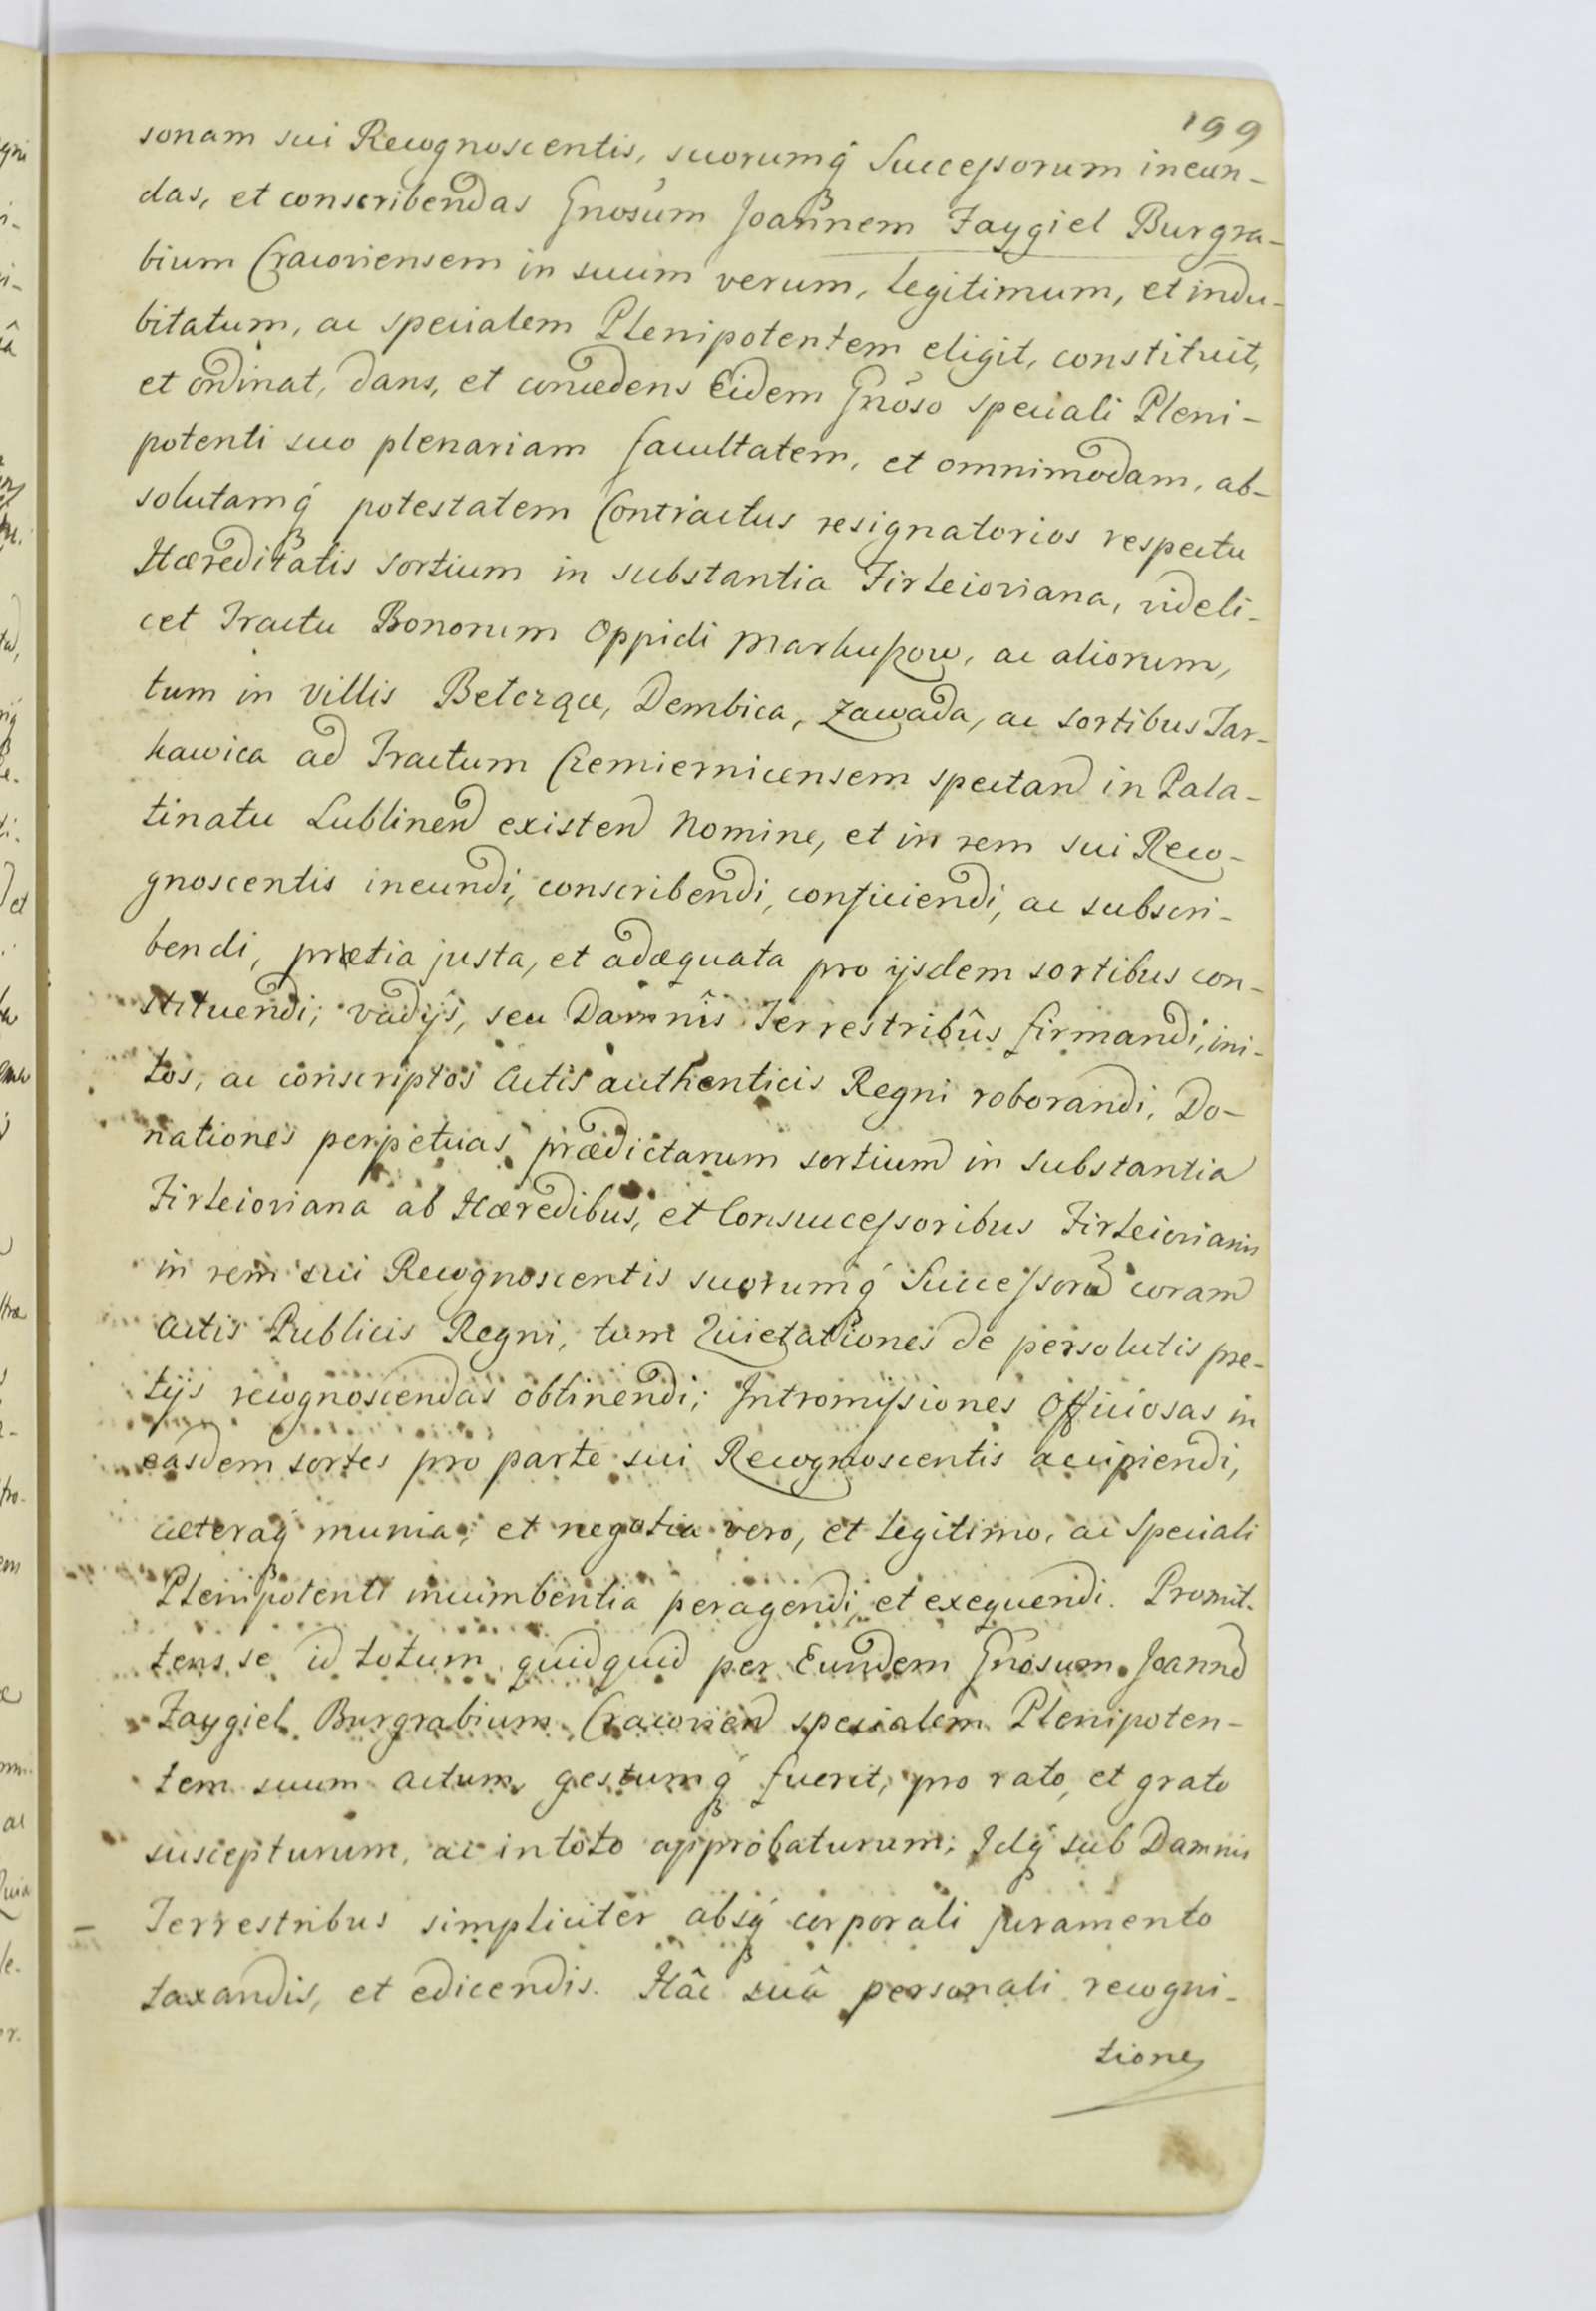 199
sonam sui Recognoscentis, suorumq́ Successorum ineun-
das, et conscribendas Gnosum Joannem Faygiel Burgra-
bium Cracoviensem in suum verum, legitimum, et indu-
bitatum, ac specialem Plenipotentem eligit, constituit,
et ordinat, dans, et concedens Eidem Gnoso speciali Pleni-
potenti suo plenariam facultatem, et omnimodam, ab-
solutamq́ potestatem Contractus resignatorios respectu
Hæreditatis sortium in substantia Firleioviana, videli-
cet Tractu Bonorum Oppidi Markuszow, ac aliorum,
tum in villis Betczące, Dembica, Zawada, ac sortibus Tar-
kawica ad Tractum Czemiernicensem spectand in Pala-
tinatu Lublinend existend Nomine, et in rem sui Reco-
gnoscentis ineundi, conscribendi, conficiendi, ac subscri-
bendi, prætia justa, et adæquata pro ijsdem sortibus con-
stituendi; vadijs, seu Damnîs Terrestribûs firmandi, ini-
tos, ac conscriptos Actis authenticis Regni roborandi, Do-
nationes perpetuas prædictarum sortium in substantia
Firleioviana ab Hæredibus, et Consuccessoribus Firleiovianis
in rem sui Recognoscentis suorumq́ Successorũ coram
Actis Publicis Regni, tum Quietationes de persolutis pre-
tijs recognoscendas obtinendi; Intromissiones Officiosas in
easdem sortes pro parte sui Recognoscentis accipiendi,
cæteraq́ munia, et negotia vero, et legitimo, ac speciali
Plenipotenti incumbentia peragendi, et exequendi. Promit-
tens se id totum quidquid per Eundem Gnosum Joannẽ
Faygiel Burgrabium Cracovien specialem Plenipoten-
tem suum actum, gestumq́ fuerit, pro rato, et grato
suscepturum, ac in toto approbaturum; Idq́ sub Damnis
Terrestribus simpliciter absq́ corporali juramento
taxandis, et edicendis. Hâc suâ personali recogni-
tione